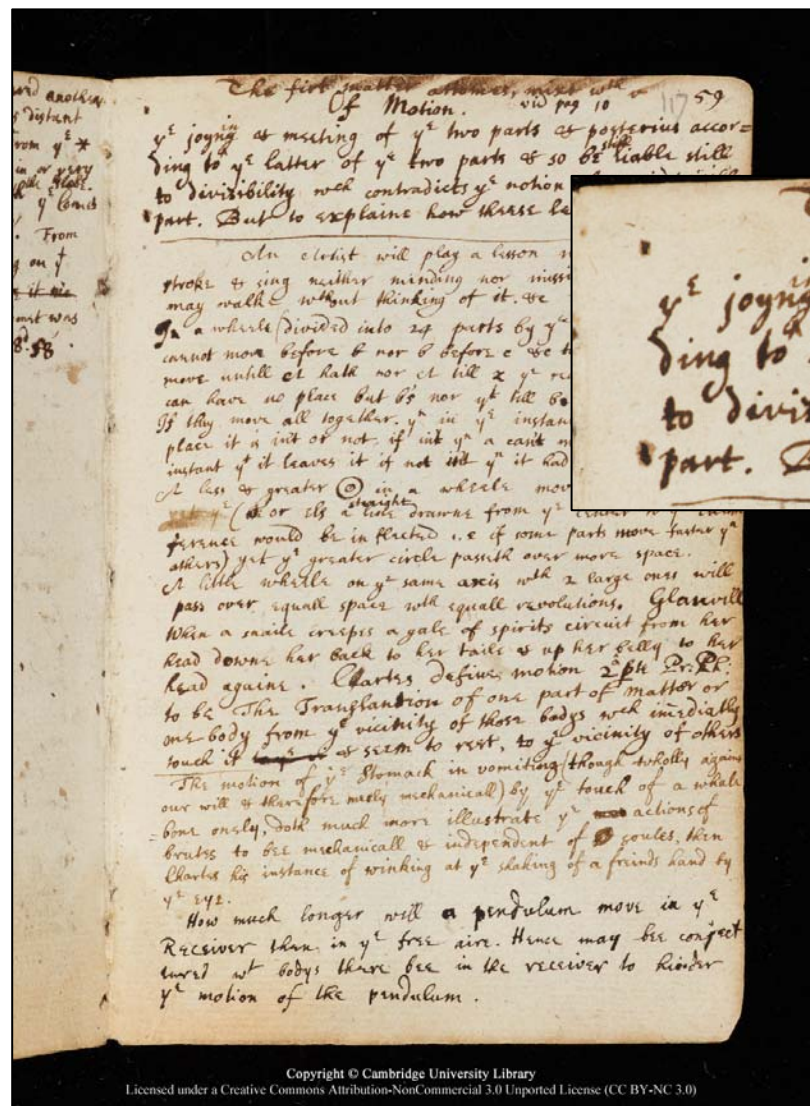 ved another
s distant
rom yᵉ *
in or very
yᵉ comes
. From
g on yᵗ
met was
The first matter attomes, mixt wᵗʰ
Of Motion. vid pag 10
117 59
yᵉ joyng in & meeting of yᵉ two parts & posterius accor=
ding to yᵉ latter of yᵉ two parts & so be still liable still
to divisibility wch contradicts yᵉ notion
part. But to explaine how theese le
An Artist will play a lesson
stroke & sing neither minding nor missi
may walke wᵗʰout thinking of it. &c
In a wheele (divided into 24 parts by yᵉ
cannot move before b nor b before c &c
move untill A hath nor A till x yᵉ
can have no place but b's nor yᵗ till b
If they move all together. yⁿ in yᵉ instan
place it is int or not. if int yⁿ a cant m
instant yᵗ it leaves it if not int yⁿ it had
A less & greater ⊙ in a wheele mov
(or els a straight line drawne from yᵉ center to yᵉ
ference would be inflected i.e if some parts move faster yⁿ
others) yet yᵉ greater circle passeth over more space.
A little wheele on yᵉ same axis wᵗʰ 2 large ones will
pass over equall space wth equall revolutions. Glanvill
When a snaile creepes a gale of spirits circuit from her
head downe her back to her taile & up her belly to her
head againe. Chartes defines motion 2ᵃ pte Pr: Ph:
to be The Translantion of one part of matter or
one body from yᵉ vicinity of those bodys wch im̄ediatly
touch it & seem to rest, to yᵉ vicinity of others
The motion of yᵉ Stomack in vomiting (though wholly against
our will & therefore mecly mechanicall) by yᵉ touch of a whale
=bone onely, doth much more illustrate yᵉ actions of
brutes to bee mechanicall & independent of soules, then
Chartes his instance of winking at yᵉ shaking of a freinds hand by
yᵉ eye.
How much longer will a pendulum move in yᵉ
Receiver then in yᵉ free aire. Hence may bee conject
tured wᵗ bodys there bee in the receiver to hinder
yᵉ motion of the pendulum.
yᵉ joyng
ding to
to divis
part.
Copyright © Cambridge University Library
Licensed under a Creative Commons Attribution-NonCommercial 3.0 Unported License (CC BY-NC 3.0)